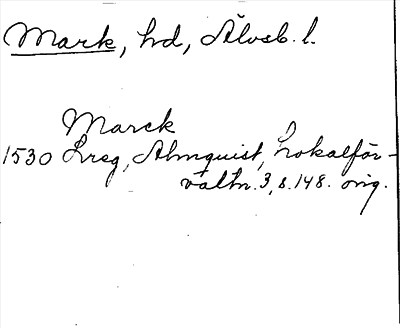 Mark, hd, Älvsb. l.
Marck
1530 Lreg, Almquist, Lokalför-
valtn. 3, s. 148. orig.